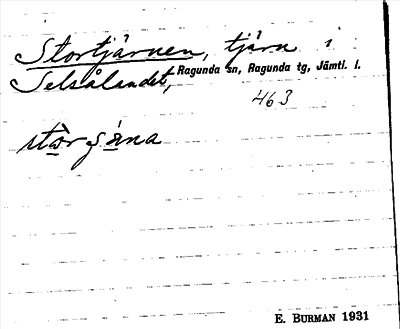 Stortjärnen, tjärn i
Selsålandet, Ragunda sn, Ragunda tg, Jämtl. l.
463
E. BURMAN 1931